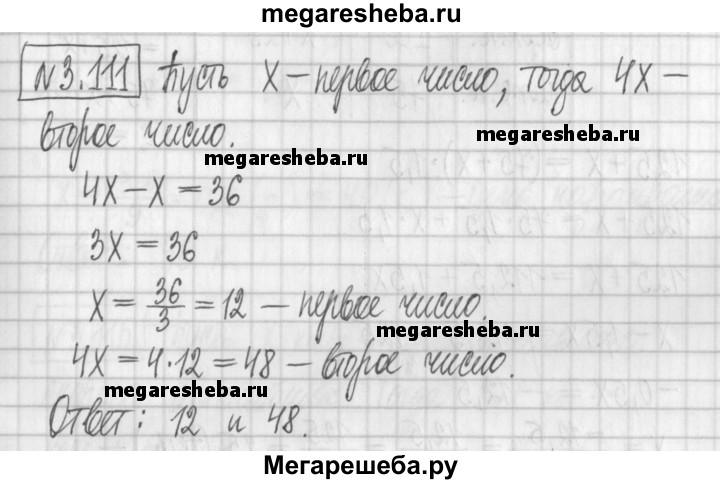 megaresheba.ru
№3.111 Пусть X – первое число, тогда 4X –
megaresheba.ru
второе число.
megaresheba.ru
4X – X = 36
megaresheba.ru
3X = 36
X = 36/3 = 12 – первое число.
megaresheba.ru
4X = 4·12 = 48 – второе число.
megaresheba.ru
Ответ: 12 и 48.
Мегарешеба.ру